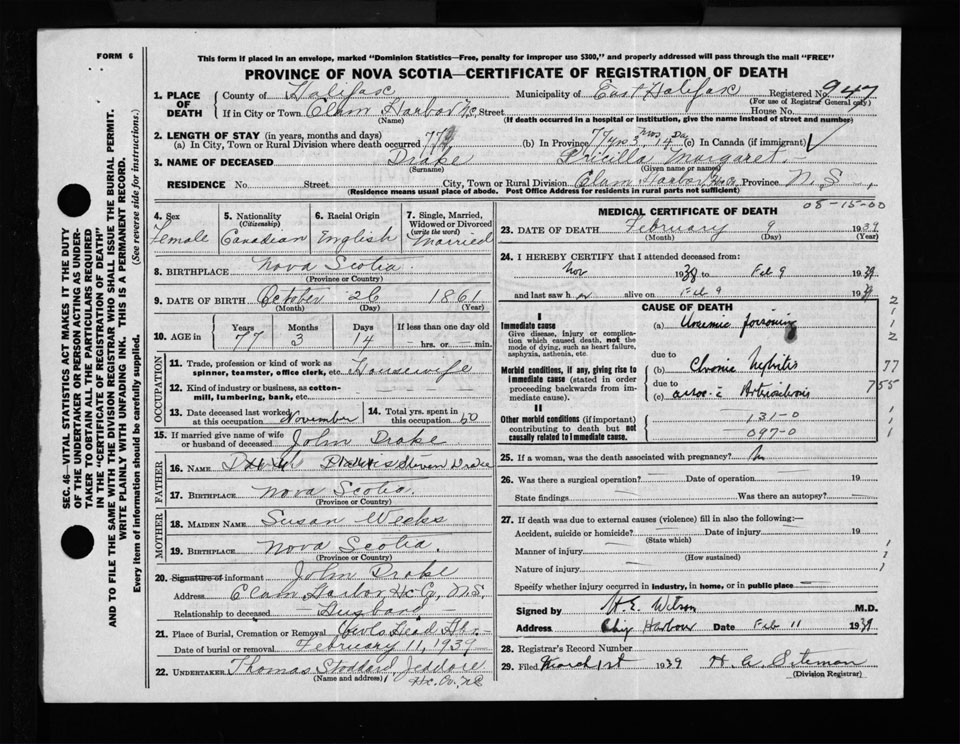 FORM 6
This form if placed in an envelope, marked "Dominion Statistics—Free, penalty for improper use $300," and properly addressed will pass through the mail "FREE"
PROVINCE OF NOVA SCOTIA—CERTIFICATE OF REGISTRATION OF DEATH
1. PLACE OF DEATH
County of Halifax Municipality of East Halifax Registered No 947
(For use of Registrar General only)
If in City or Town Clam Harbor Street House No.
(Name) (If death occurred in a hospital or institution, give the name instead of street and number)
2. LENGTH OF STAY (in years, months and days)
(a) In City, Town or Rural Division where death occurred 77 (b) In Province 77 yrs 3 mos 14 Da (c) In Canada (if immigrant)
3. NAME OF DECEASED Drake Pricilla Margaret.
(Surname) (Given name or names)
RESIDENCE No. Street City, Town or Rural Division Clam Harbor Hx Co. Province N.S.
(Residence means usual place of abode. Post Office Address for residents in rural parts not sufficient)
08-15-00
4. Sex Female
5. Nationality (Citizenship) Canadian
6. Racial Origin English
7. Single, Married, Widowed or Divorced (write the word) Married
8. BIRTHPLACE Nova Scotia.
(Province or Country)
9. DATE OF BIRTH October 26 1861
(Month) (Day) (Year)
10. AGE in Years Months Days If less than one day old
77 3 14 — hrs. or — min.
OCCUPATION
11. Trade, profession or kind of work as spinner, teamster, office clerk, etc. Housewife
12. Kind of industry or business, as cotton-mill, lumbering, bank, etc.
13. Date deceased last worked at this occupation November
14. Total yrs. spent in this occupation 50
15. If married give name of wife or husband of deceased John Drake
FATHER
16. NAME Steven Drake
17. BIRTHPLACE Nova Scotia.
(Province or Country)
MOTHER
18. MAIDEN NAME Susan Weeks
19. BIRTHPLACE Nova Scotia.
(Province or Country)
20. Signature of informant John Drake
Address Clam Harbor Hx Co. N.S.
Relationship to deceased — Husband —
21. Place of Burial, Cremation or Removal Owls Head Hbr.
Date of burial or removal February 11, 1939
22. UNDERTAKER Thomas Stoddard, Jeddore
(Name and address) Hx. Co. N.S.
MEDICAL CERTIFICATE OF DEATH
23. DATE OF DEATH February 9 1939
(Month) (Day) (Year)
24. I HEREBY CERTIFY that I attended deceased from:
Nov 1938 to Feb 9 1939
and last saw h er alive on Feb 9 1939
CAUSE OF DEATH
I
Immediate cause
Give disease, injury or complication which caused death, not the mode of dying, such as heart failure, asphyxia, asthenia, etc.
(a) Uraemic poisoning
due to
Morbid conditions, if any, giving rise to immediate cause (stated in order proceeding backwards from immediate cause).
(b) Chronic Nephritis
due to
(c)
II
Other morbid conditions (if important) contributing to death but not causally related to immediate cause.
131-0
097-0
2
1
1
2
77
755
1
1
1
25. If a woman, was the death associated with pregnancy?
26. Was there a surgical operation? Date of operation 19
State findings Was there an autopsy?
27. If death was due to external causes (violence) fill in also the following:—
Accident, suicide or homicide? Date of injury 19
(State which)
Manner of injury
(How sustained)
Nature of injury
Specify whether injury occurred in industry, in home, or in public place
Signed by W. E. Wilson M.D.
Address Ship Harbour Date Feb 11 1939
28. Registrar's Record Number
29. Filed March 1st 1939 H. A. Siteman
(Division Registrar)
SEC. 46—VITAL STATISTICS ACT MAKES IT THE DUTY
OF THE UNDERTAKER OR PERSON ACTING AS UNDER-
TAKER TO OBTAIN ALL THE PARTICULARS REQUIRED
IN THE "CERTIFICATE OF REGISTRATION OF DEATH"
AND TO FILE THE SAME WITH THE DIVISION REGISTRAR WHO SHALL ISSUE THE BURIAL PERMIT.
WRITE PLAINLY WITH UNFADING INK. THIS IS A PERMANENT RECORD.
Every item of information should be carefully supplied. (See reverse side for instructions).